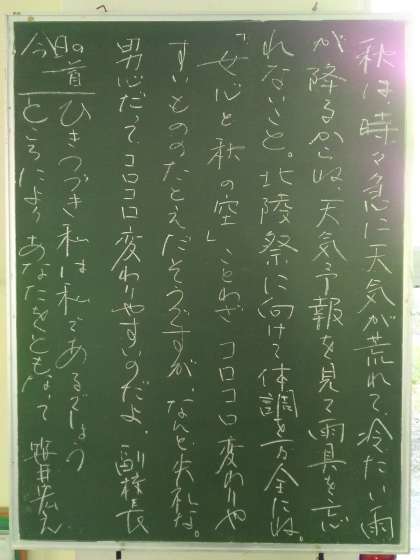 秋は、時々急に天気が荒れて、冷たい雨
が降るからね、天気予報を見て雨具を忘
れないこと。北陵祭に向けて体調を万全にね。
「女心と秋の空」ことわざ コロコロ変わりや
すいもののたとえだそうですが、なんと失礼な。
男心だって、コロコロ変わりやすいのだよ。 副校長
今日の一首 ひきつづき私は私であるでしょう
ところによりあなたをともなって 笹井宏之